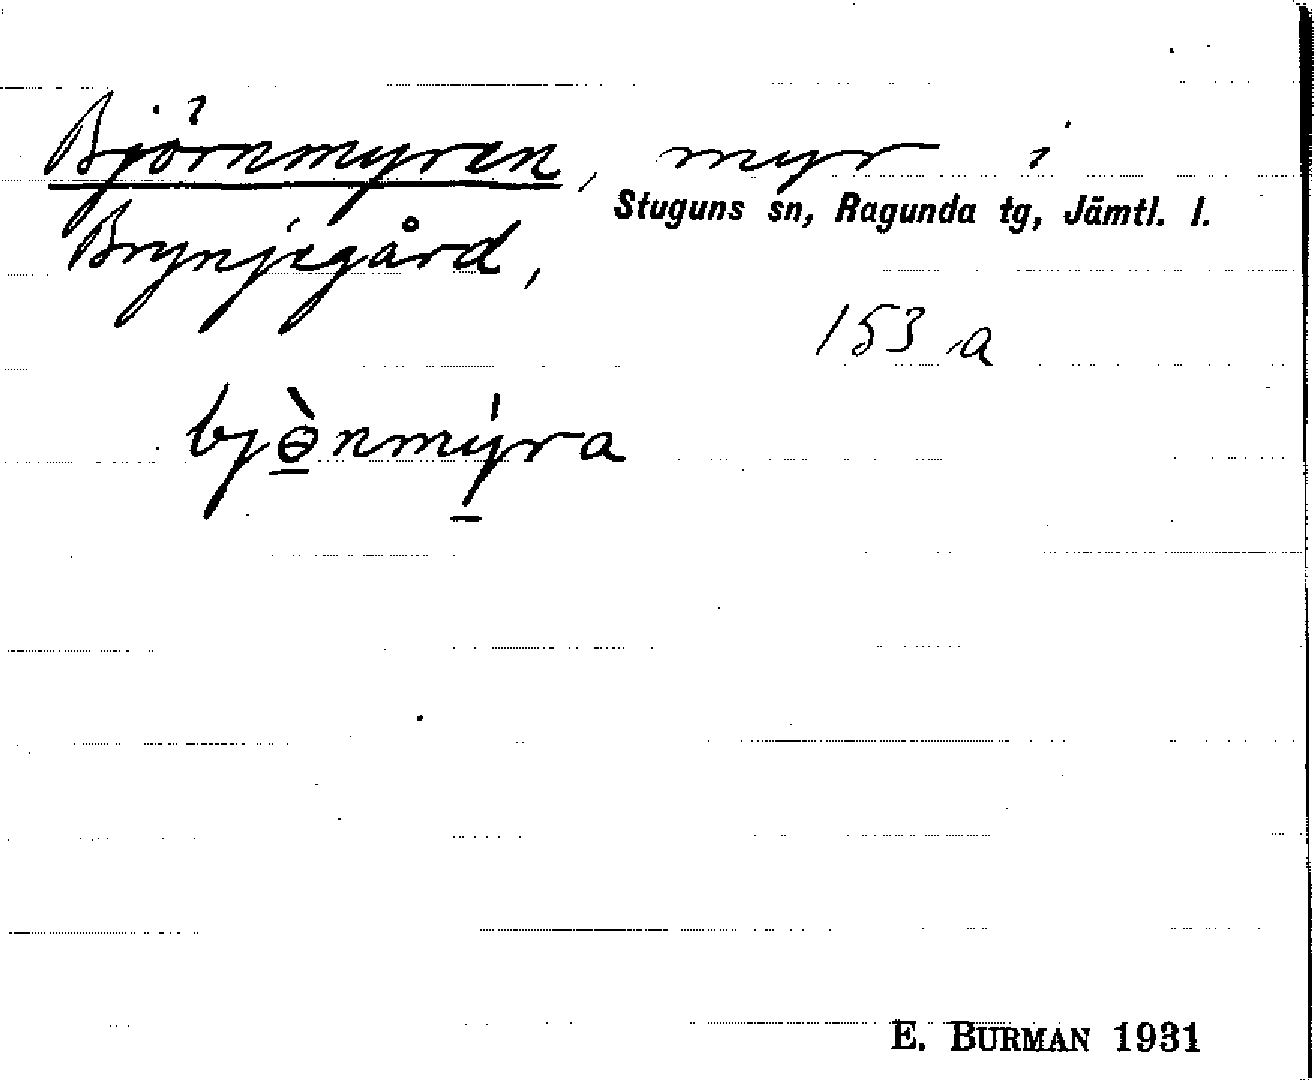 Björnmyren, myr i
Brynjegård, Stuguns sn, Ragunda tg, Jämtl. l.
153 a
bjɵ̲̀nmý̲ra
E. BURMAN 1931